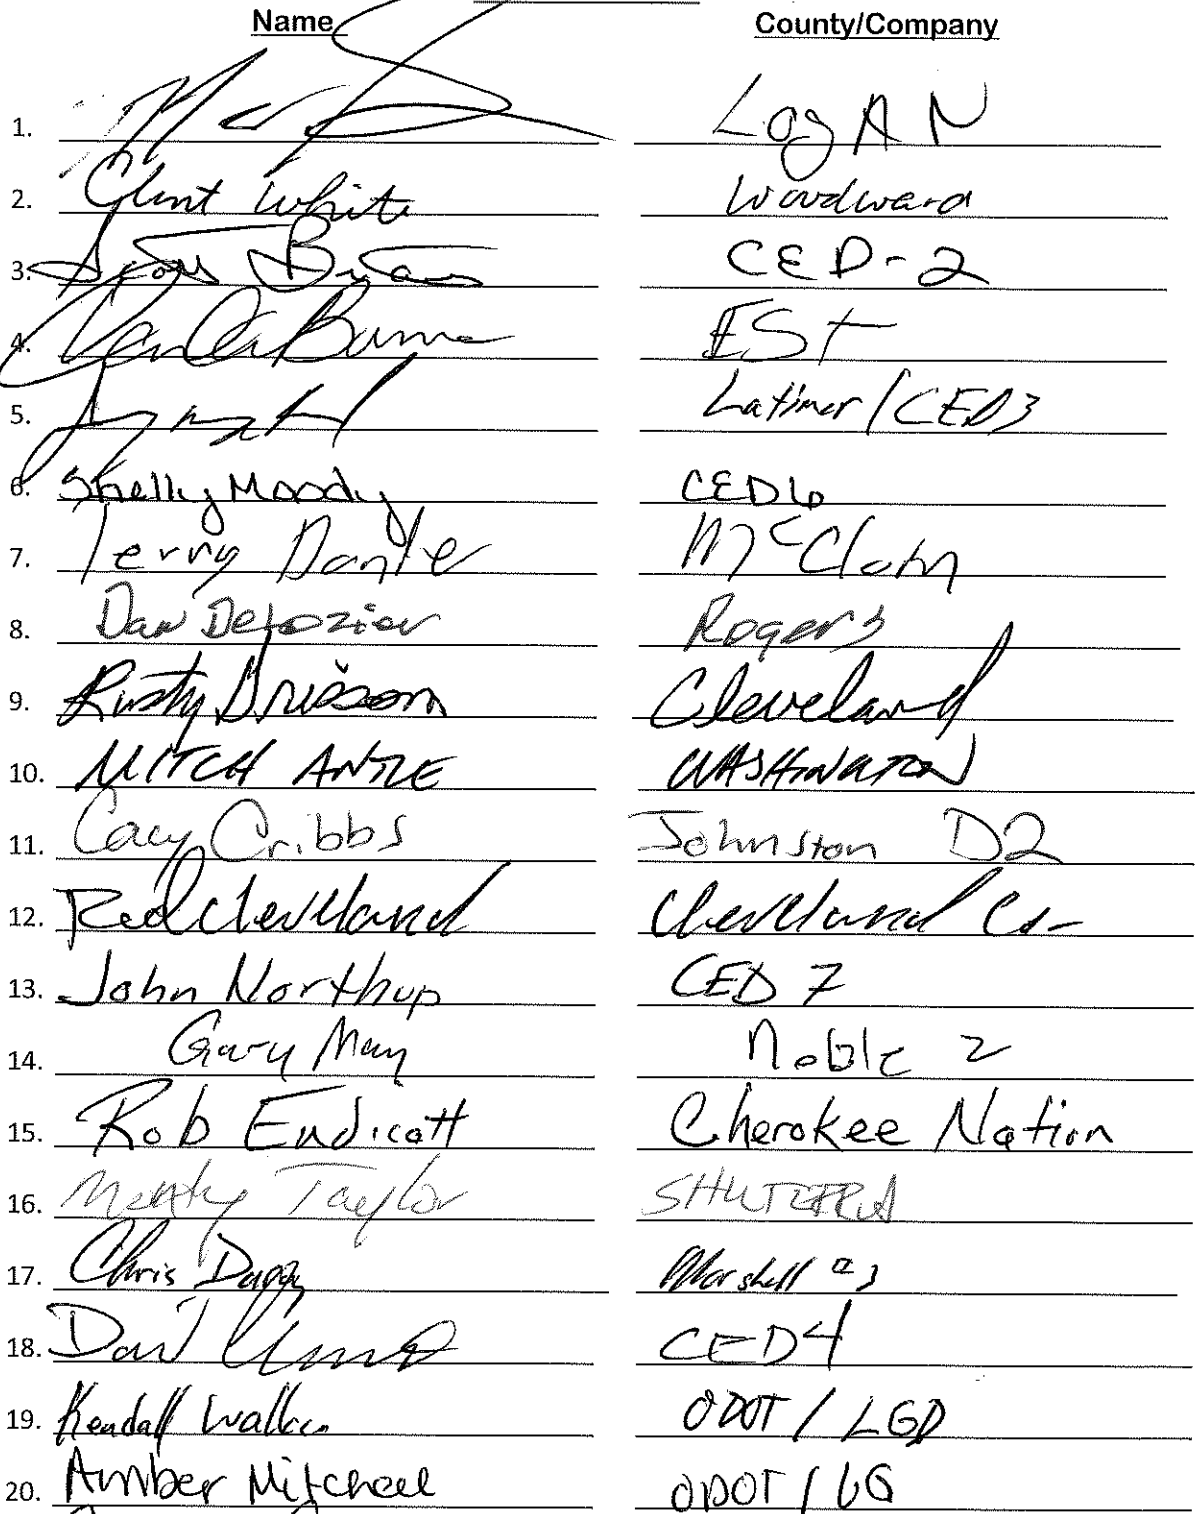 Name County/Company
1. Logan
2. Clint White Woodward
3. CED-2
4. EST
5. Latimer/CED3
6. Shelly Moody CED6
7. Terry Daniel McClain
8. Dan Delozier Rogers
9. Rusty Grissom Cleveland
10. MITCH ANTLE WASHINGTON
11. Cacy Cribbs Johnston D2
12. Rod Cleveland Cleveland Co-
13. John Northup CED 7
14. Gary May Noble 2
15. Rob Endicott Cherokee Nation
16. Taylor
17. Chris Duroy Marshall #3
18. CED4
19. Kendall ODOT / LGD
20. Amber Mitchell ODOT / LG